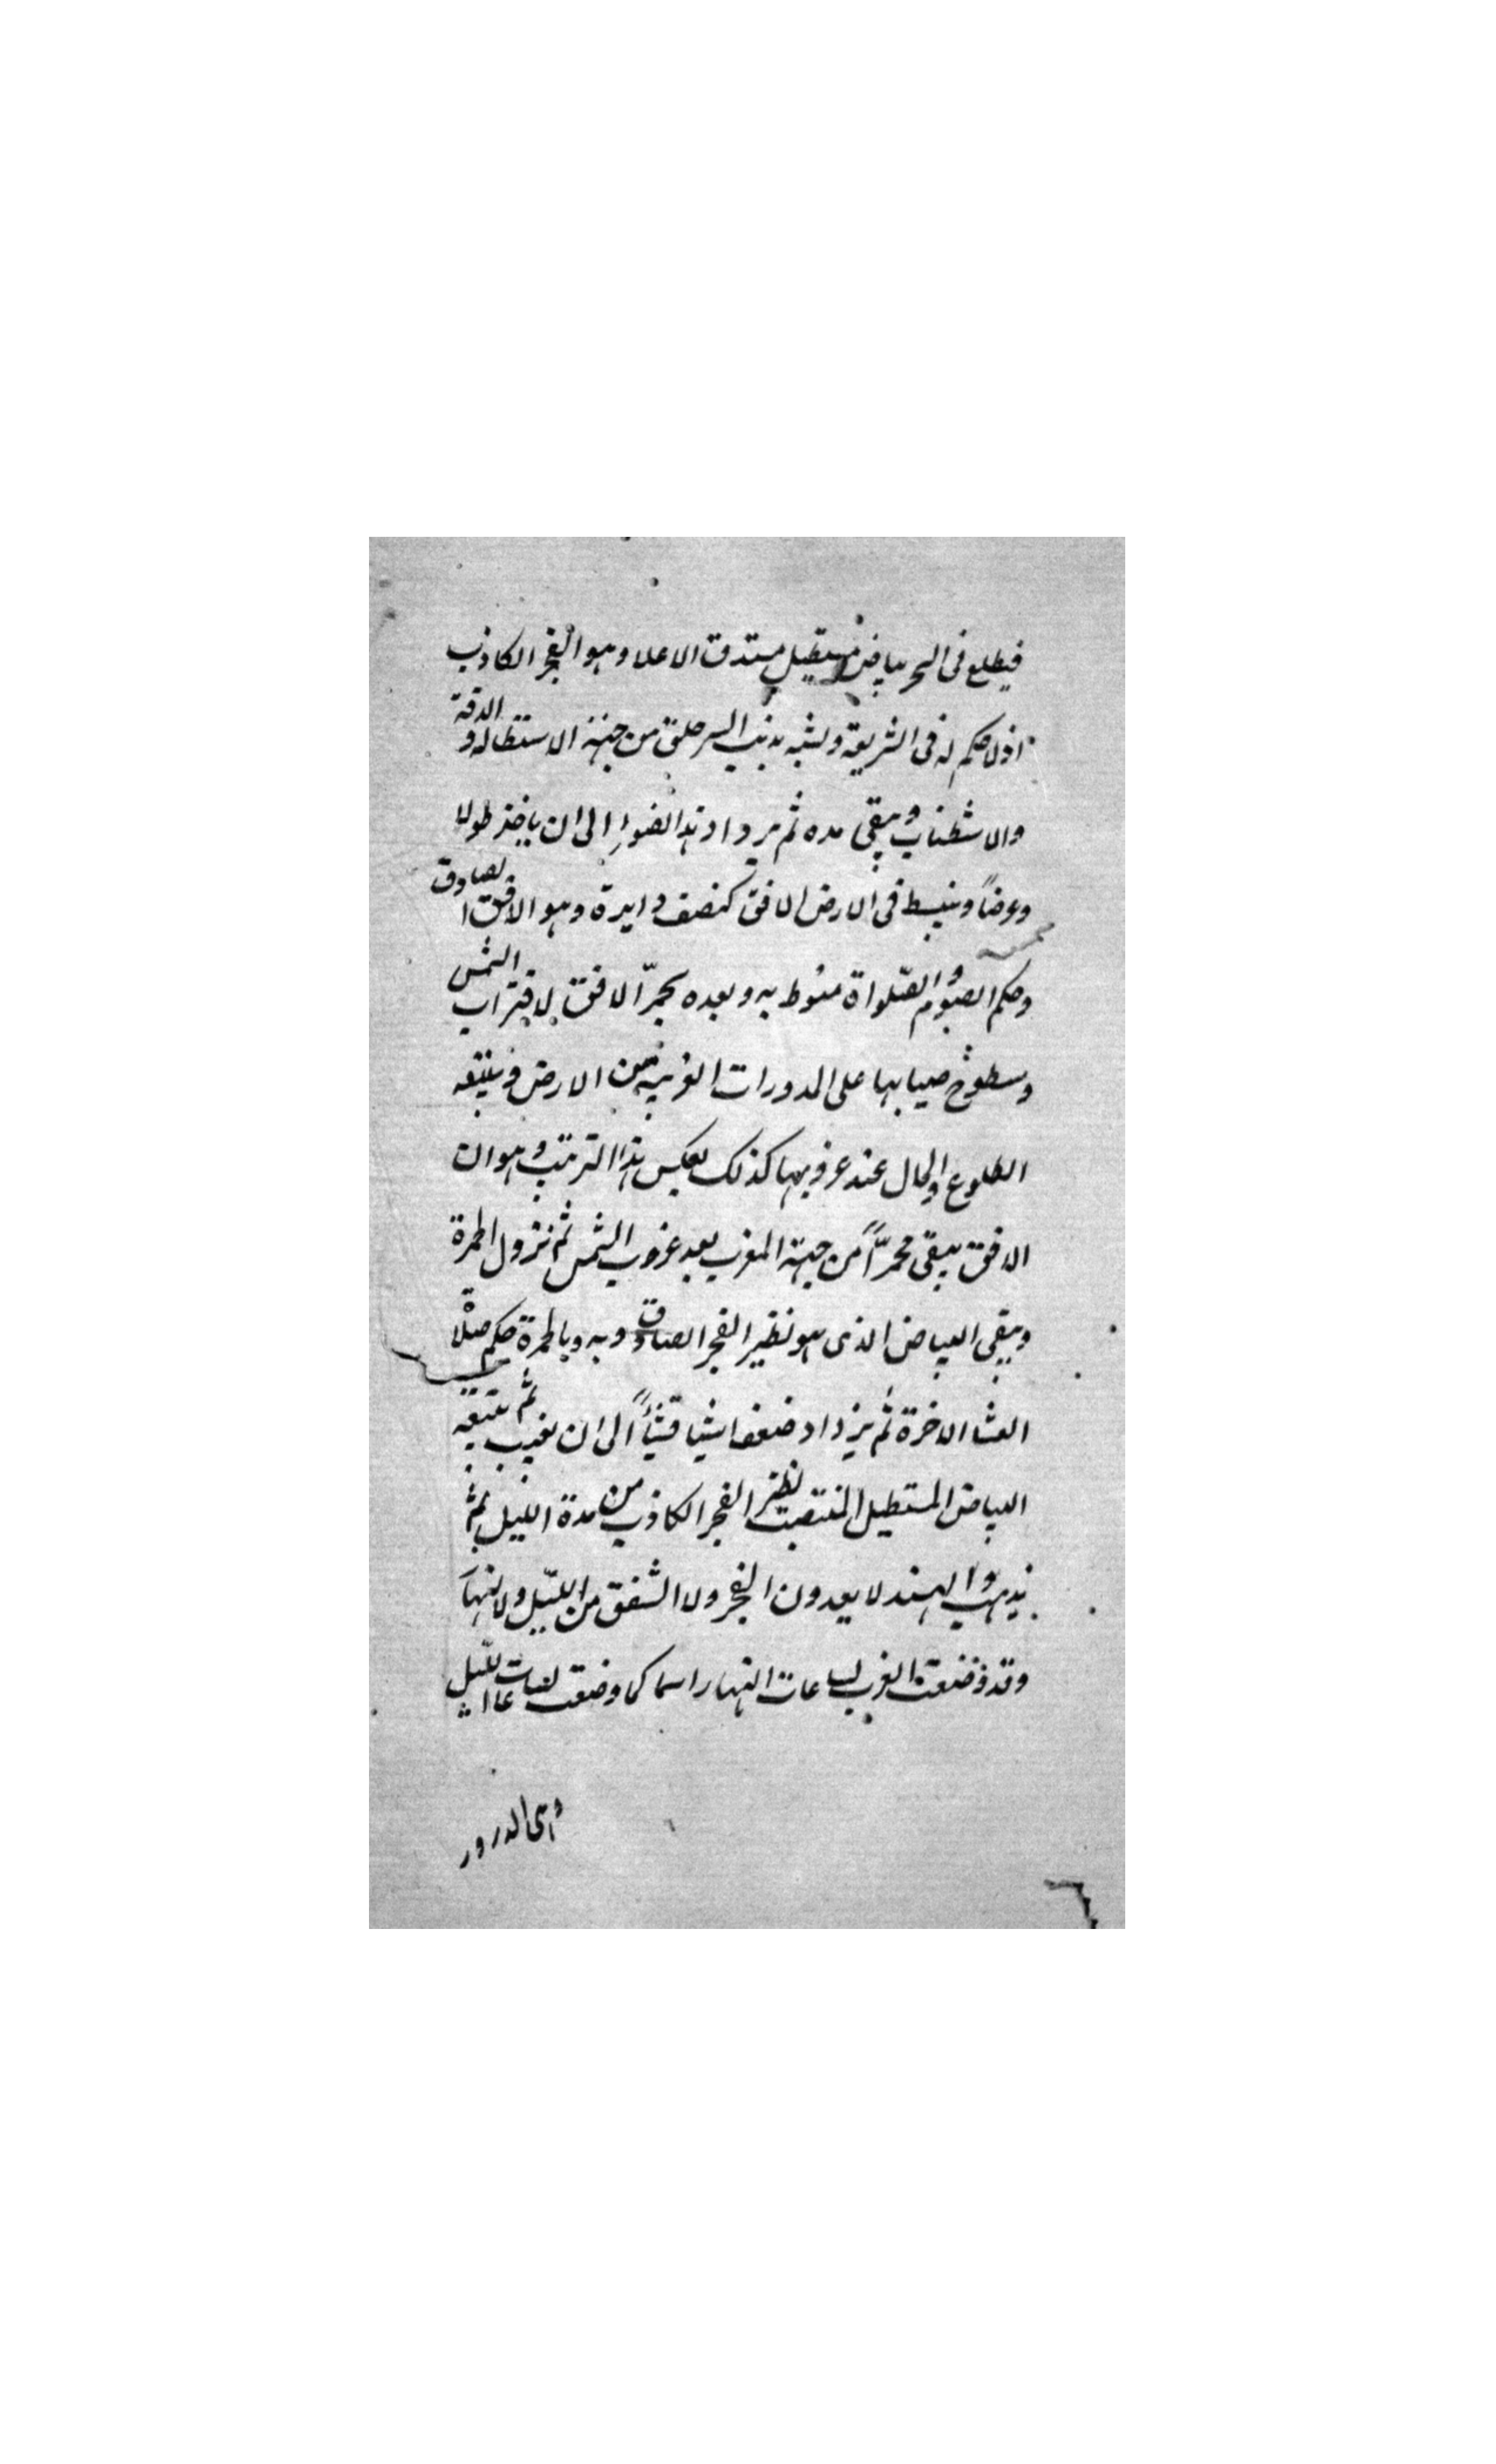 فيطلع فى السحر بياض مستطيل مستدق الاعلا وهو الفجر الكاذب
اذ لا حكم له فى الشريعة ويشبه بذنب السرحان من جهة الاستطالة والدقة
والاشطناب ويبقى مده ثم يزداد هذا الضوء الى ان ياخذ طولا
وعرضاً وينبسط فى الارض الافق كنصف دايرة وهو الافق الصادق
وحكم الصوم والصلواة منوط به وبعده يحمرّ الافق لاقتراب الشمس
وسطوع ضيايها على المدورات القريبة من الارض ويتبعه
الطلوع والحال عند غروبها كذلك بعكس هذا الترتيب وهو ان
الافق يبقى محمرّاً من جهة المغرب بعد غروب الشمس ثم نزول الحمرة
ويبقى البياض الذى هو نظير الفجر الصادق وبه وبالحمرة حكم صلاة
العشا الاخرة ثم يزداد ضعفا شيا فشيأً الى ان يغيب ثم يتبعه
البياض المستطيل المنتصب نظير الفجر الكاذب من مدة الليل ثم
يذهب والهند لا يعدون الفجر ولا الشفق من الليل ولا النهار
وقد وضعت العرب لساعات النهار اسما كما وضعت لساعات الليل
وهى الدرور